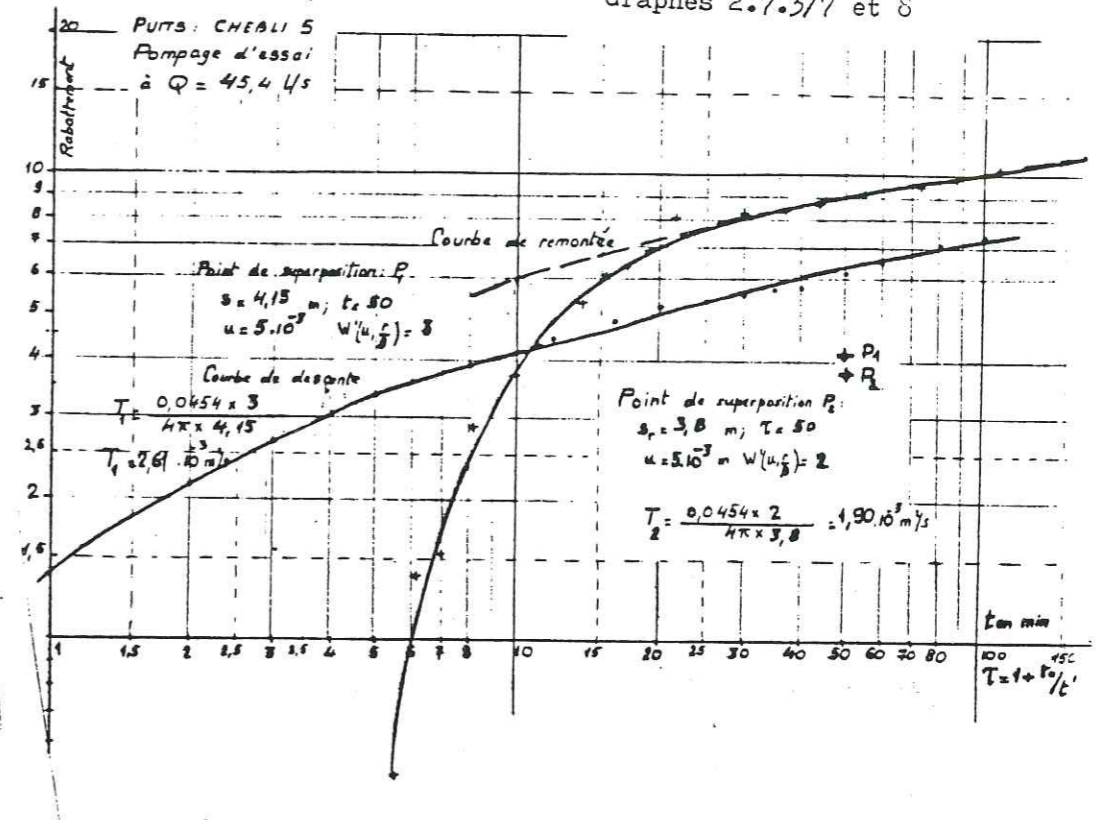 Graphes 2.7.3/7 et 8
PUITS: CHEBLI 5
Pompage d'essai
à Q = 45,4 l/s
Rabattement
20
15
10
9
8
7
6
5
4
3
2,5
2
1,5
Courbe de remontée
Point de superposition: P1
s = 4,15 m; t = 50
u = 5.10⁻³ W(u, r/B) = 3
Courbe de descente
T1 = 0,0454 x 3 / 4π x 4,15
T1 = 2,61 .10⁻³ m²/s
P1
P2
Point de superposition P2:
sr = 3,8 m; τ = 50
u = 5.10⁻³ m W(u, r/B) = 2
T2 = 0,0454 x 2 / 4π x 3,8 = 1,90.10⁻³ m²/s
t en min
1 1,5 2 2,5 3 3,5 4 5 6 7 8 10 15 20 25 30 40 50 60 70 80 100 150
τ = 1 + to/t'